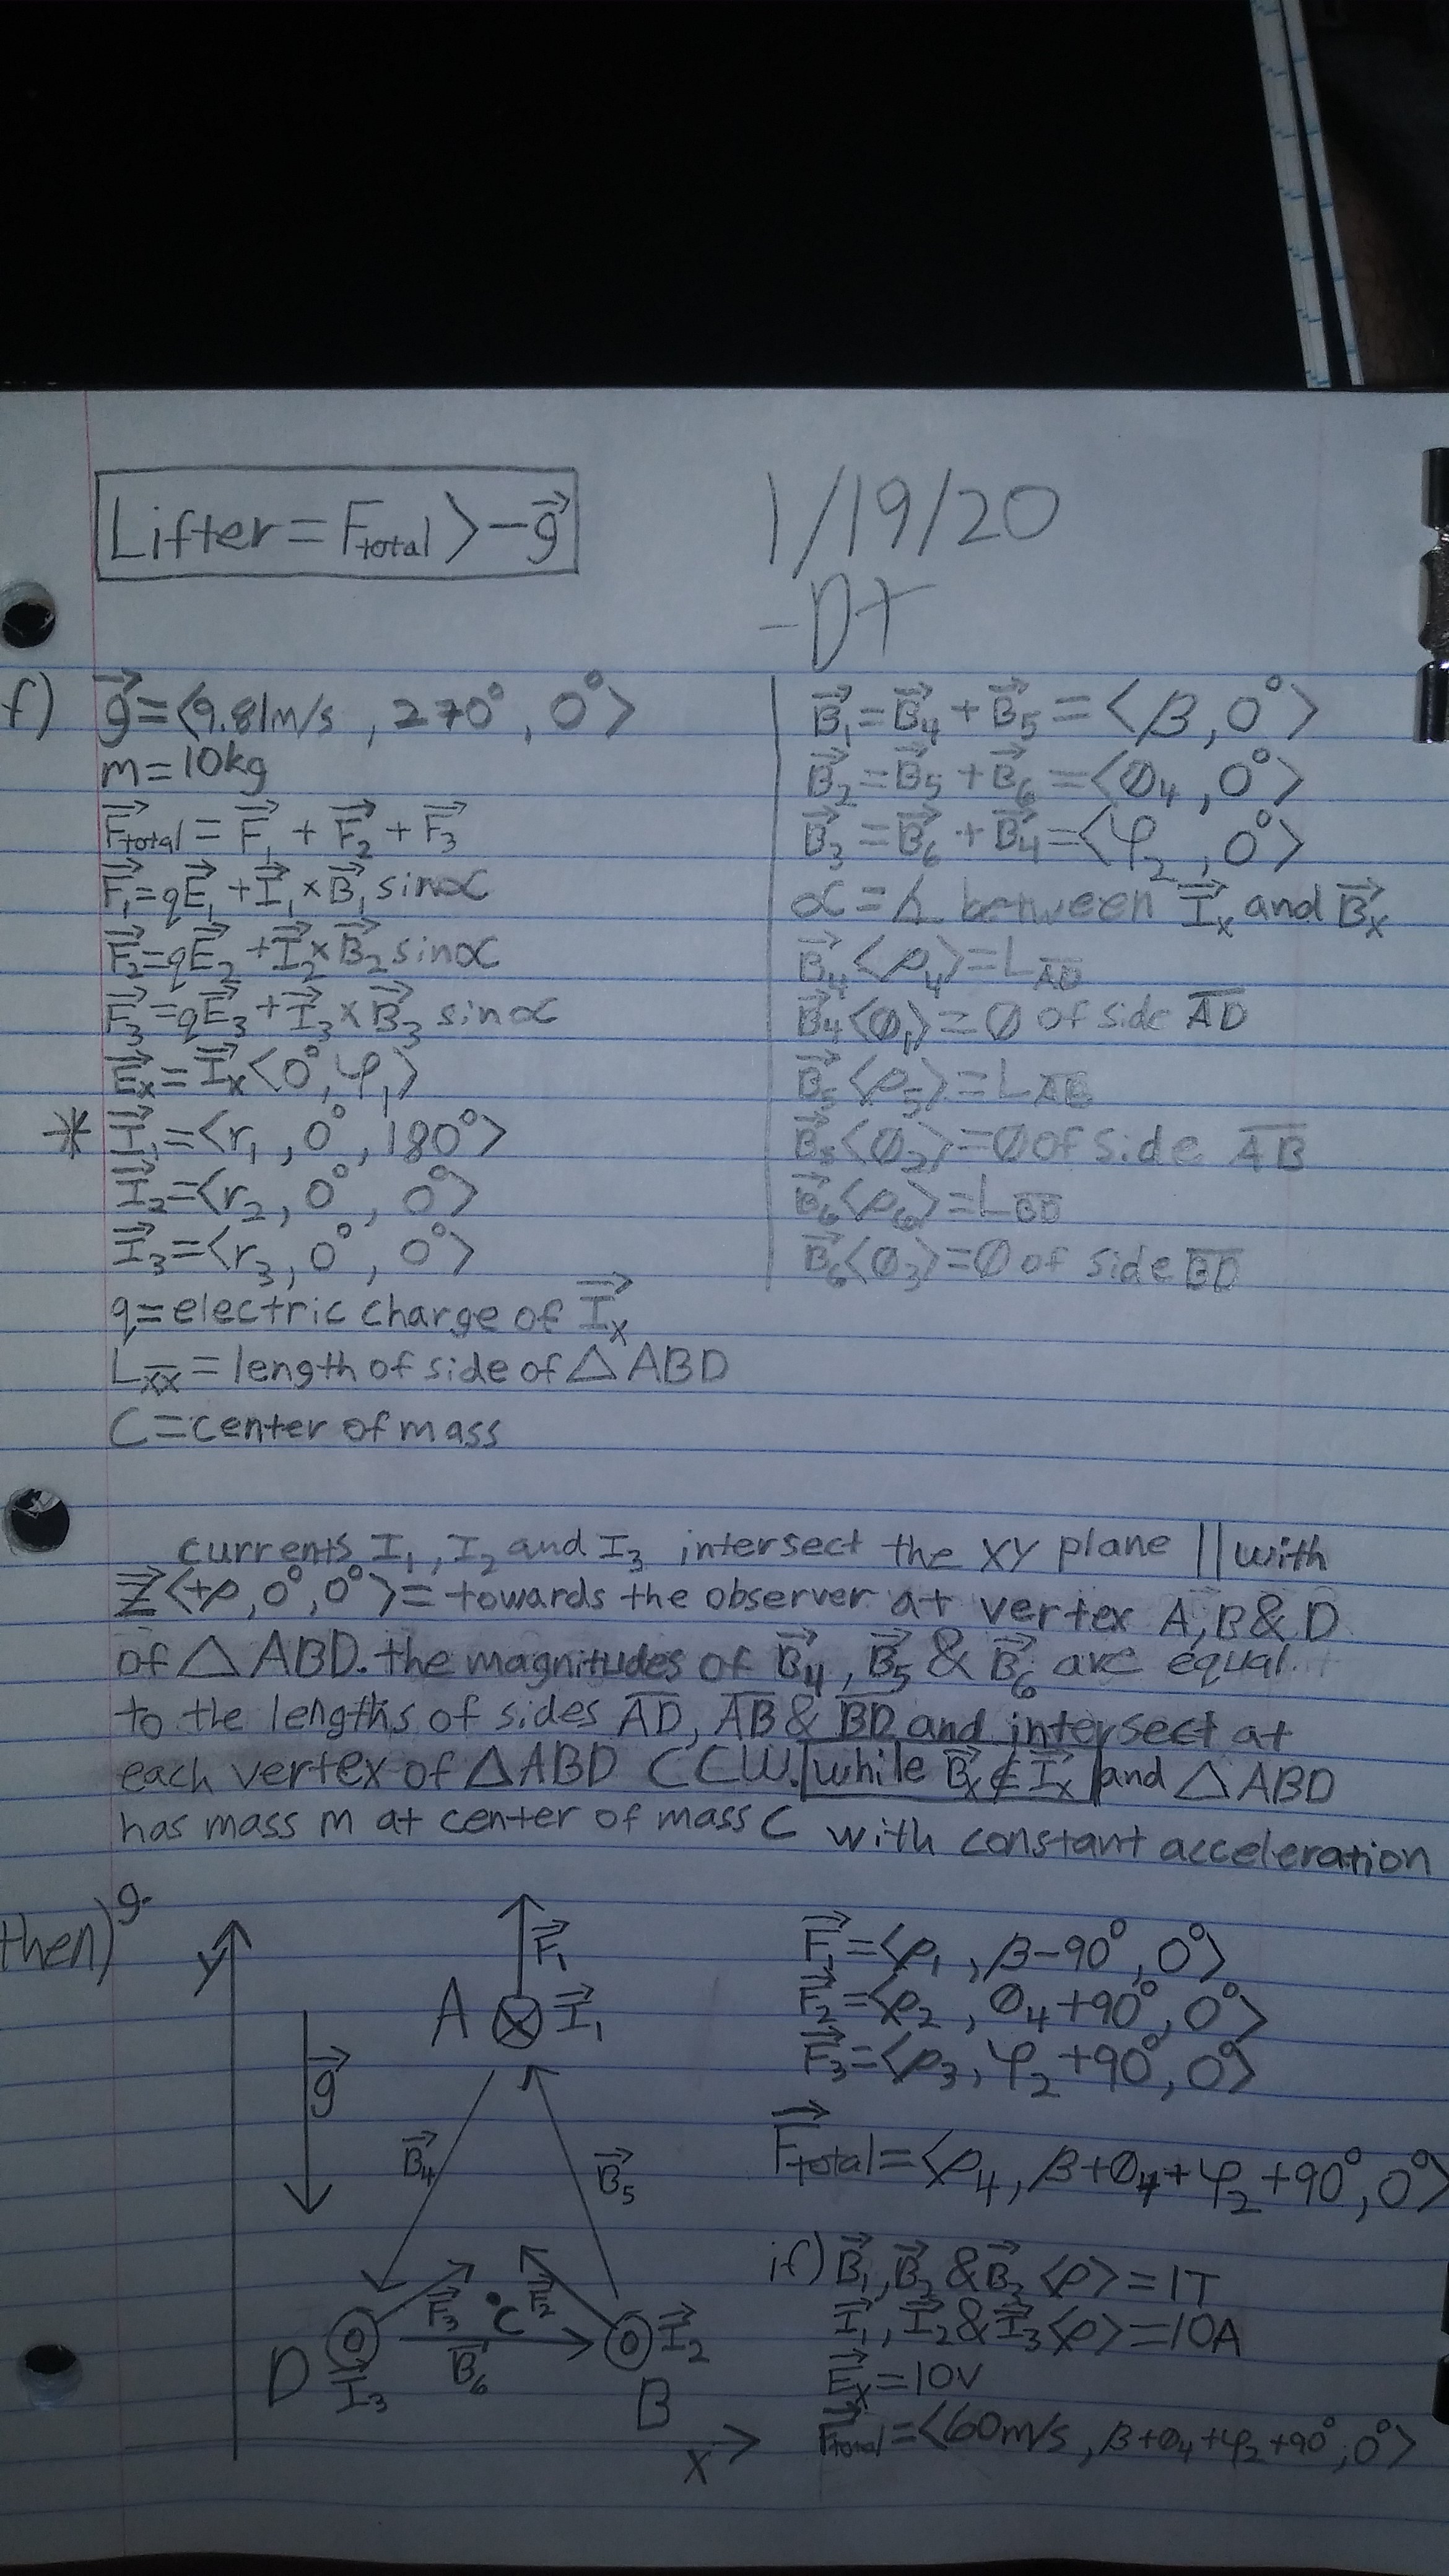 Lifter = Ftotal > -g⃗
1/19/20
-DT
f) g⃗ = ⟨9.81m/s, 270°, 0°⟩
m = 10kg
F⃗total = F⃗1 + F⃗2 + F⃗3
F⃗1 = qE⃗1 + I⃗1 × B⃗1 sin∝
F⃗2 = qE⃗2 + I⃗2 × B⃗2 sin∝
F⃗3 = qE⃗3 + I⃗3 × B⃗3 sin∝
E⃗x = I⃗x⟨0°, φ1⟩
* I⃗1 = ⟨r1, 0°, 180°⟩
I⃗2 = ⟨r2, 0°, 0°⟩
I⃗3 = ⟨r3, 0°, 0°⟩
q = electric charge of I⃗x
Lx̅x̅ = length of side of △ABD
C = center of mass
B⃗1 = B⃗4 + B⃗5 = ⟨β, 0°⟩
B⃗2 = B⃗5 + B⃗6 = ⟨Ø4, 0°⟩
B⃗3 = B⃗6 + B⃗4 = ⟨φ2, 0°⟩
∝ = ∠ between I⃗x and B⃗x
B⃗4⟨ρ4⟩ = LA̅D̅
B⃗4⟨Ø1⟩ = Ø of side A̅D̅
B⃗5⟨ρ5⟩ = LA̅B̅
B⃗5⟨Ø2⟩ = Ø of side A̅B̅
B⃗6⟨ρ6⟩ = LB̅D̅
B⃗6⟨Ø3⟩ = Ø of side B̅D̅
currents I1, I2 and I3 intersect the XY plane || with
Z⃗⟨+ρ, 0°, 0°⟩ = towards the observer at vertex A, B & D
of △ABD. the magnitudes of B⃗4, B⃗5 & B⃗6 are equal
to the lengths of sides A̅D̅, A̅B̅ & B̅D̅ and intersect at
each vertex of △ABD CCW. while B⃗x ∉ I⃗x and △ABD
has mass m at center of mass C with constant acceleration
g.
then)
y
F⃗1
A I⃗1
g⃗
B⃗4 B⃗5
F⃗3 C F⃗2
D I⃗3 B⃗6 I⃗2
B
x
F⃗1 = ⟨ρ1, β-90°, 0°⟩
F⃗2 = ⟨ρ2, Ø4+90°, 0°⟩
F⃗3 = ⟨ρ3, φ2+90°, 0°⟩
F⃗total = ⟨ρ4, β+Ø4+φ2+90°, 0°⟩
if) B⃗1, B⃗2 & B⃗3⟨ρ⟩ = 1T
I⃗1, I⃗2 & I⃗3⟨ρ⟩ = 10A
E⃗x = 10V
F⃗total = ⟨60m/s, β+Ø4+φ2+90°, 0°⟩